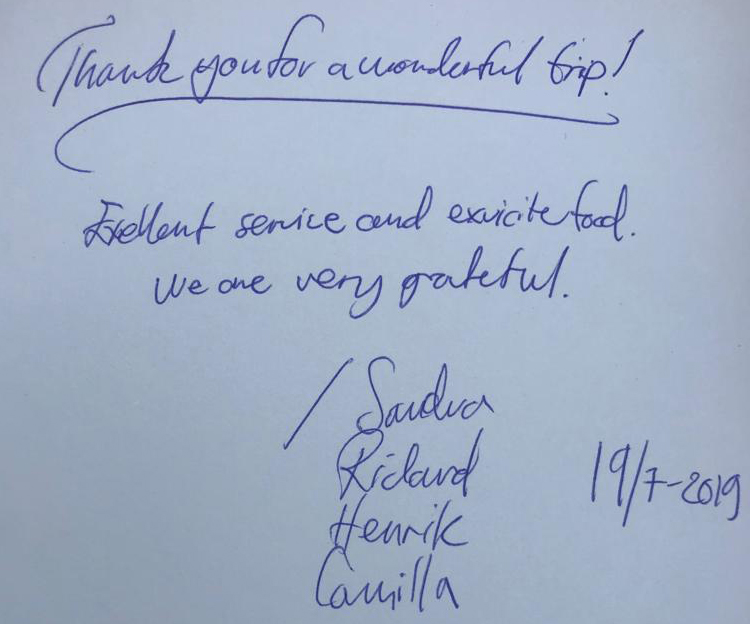 Thank you for a wonderful trip!
Exellent service and exvicite food.
We are very grateful.
/ Sandra
Richard
Henrik
Camilla
19/7-2019